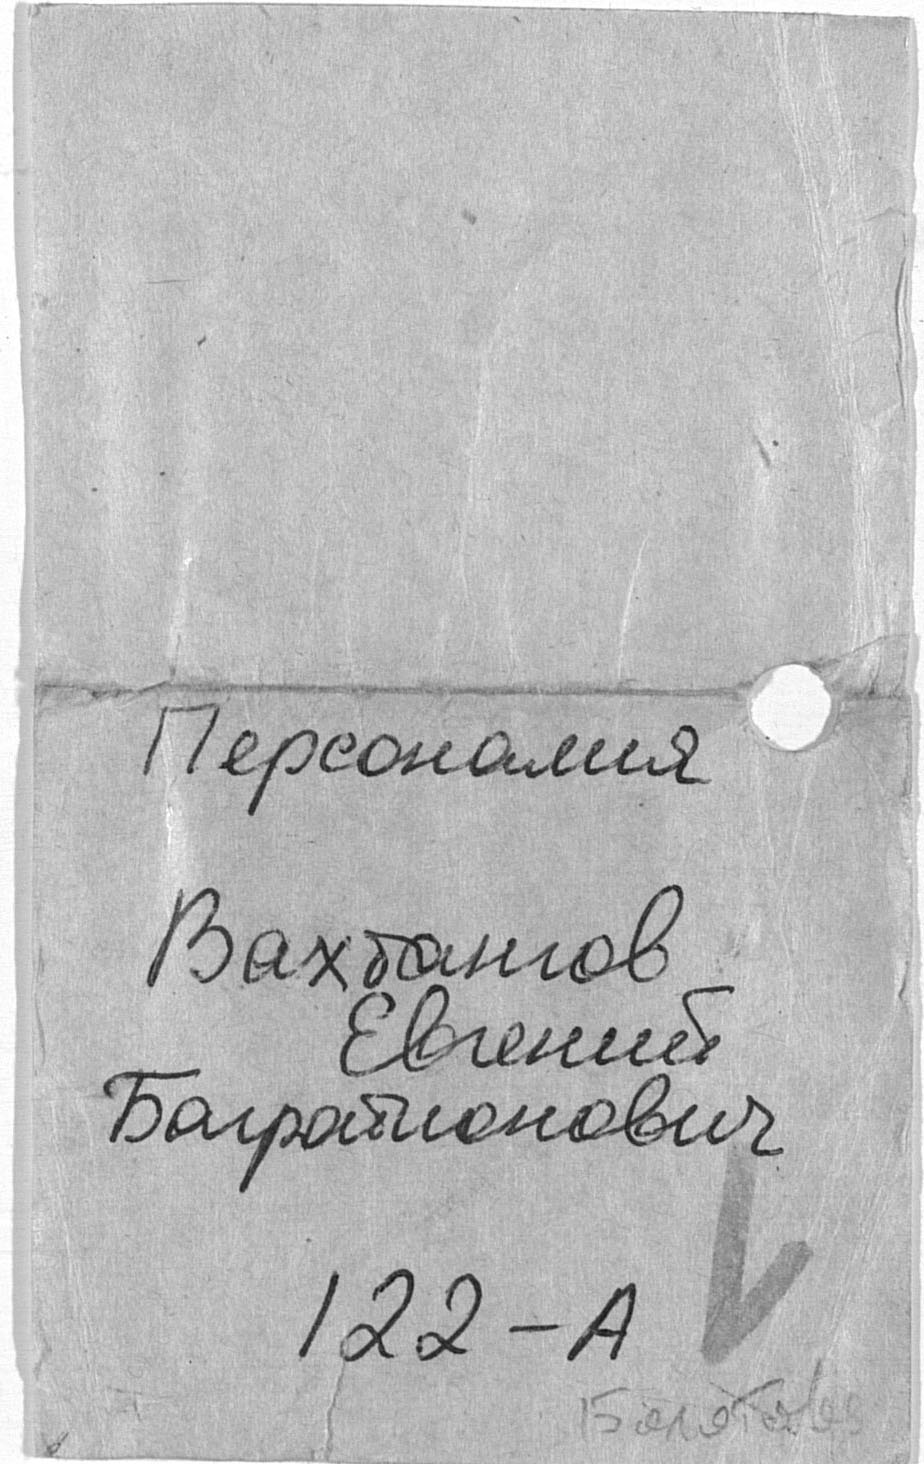 Персоналия
Вахтангов
Евгений
Багратионович
122-А